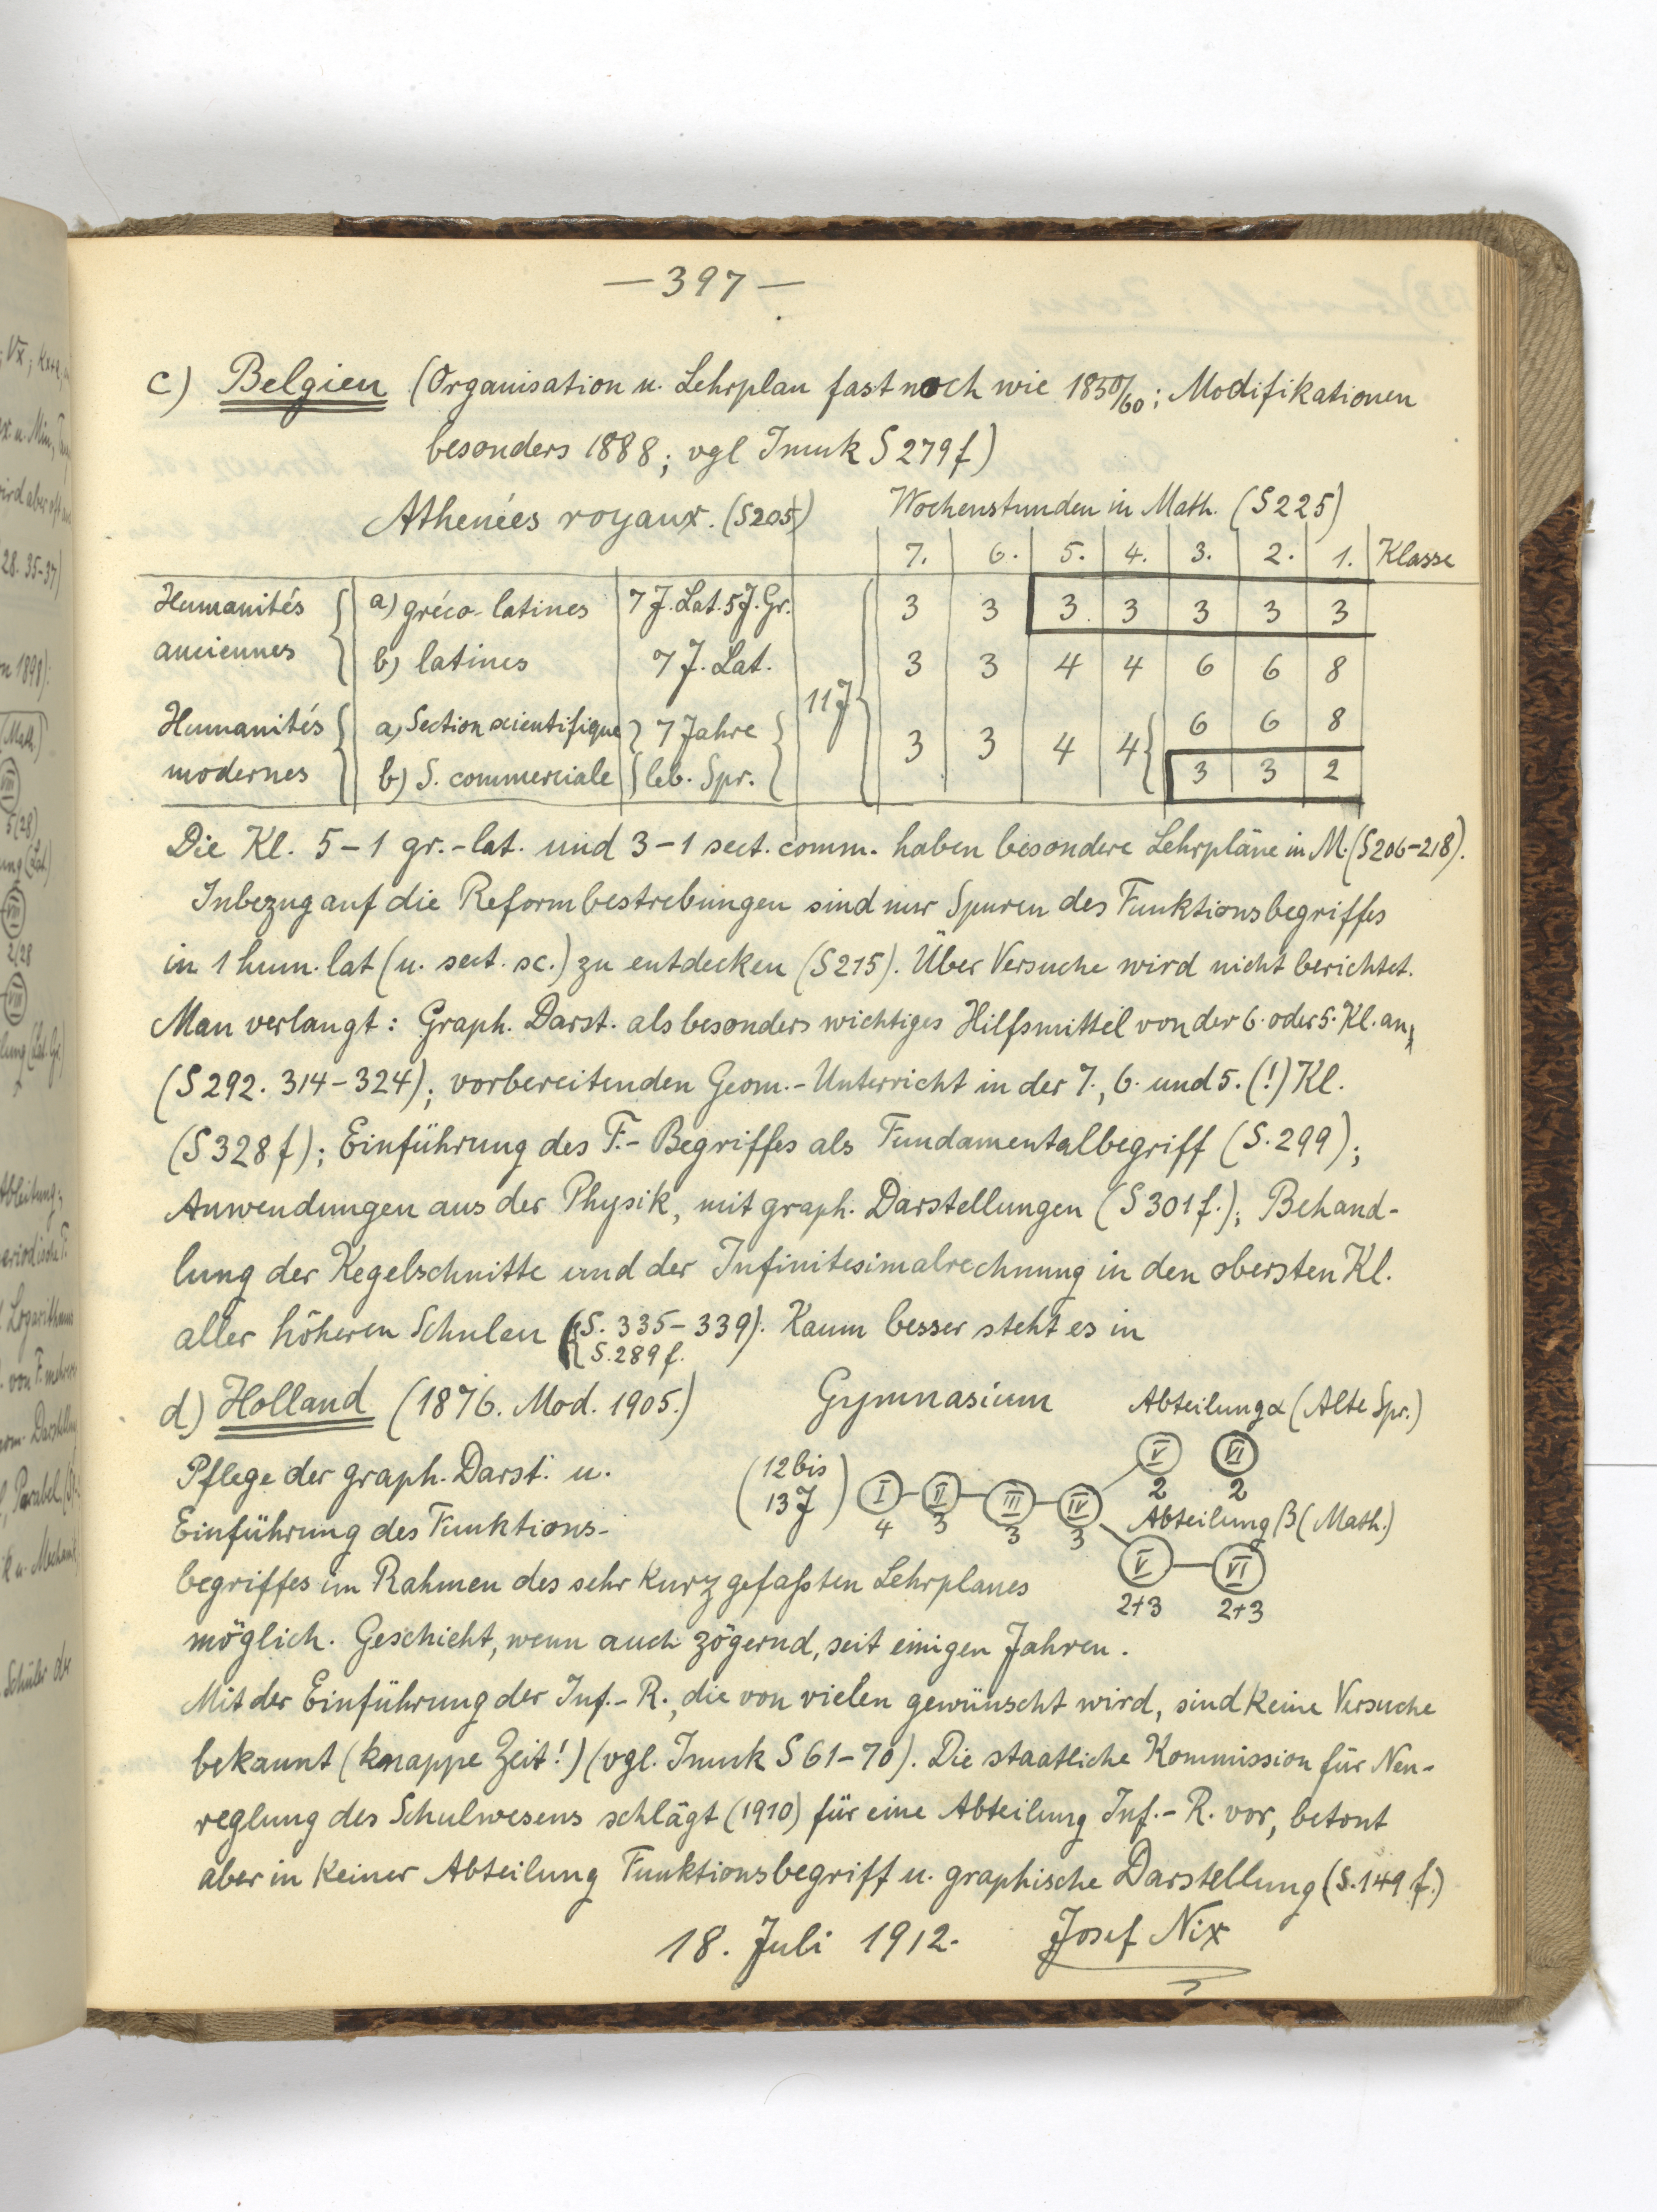 —397—
c) Belgien (Organisation u. Lehrplan fast noch wie 1850/60; Modifikationen
besonders 1888; vgl Imuk S 279f)
Athenées royaux. (S205) Wochenstunden in Math. (S225)
7. 6. 5. 4. 3. 2. 1. Klasse
Humanités a) gréco-latines 7 J. Lat. 5 J. Gr. 3 3 3 3 3 3 3
anciennes b) latines 7 J. Lat. 3 3 4 4 6 6 8
11 J
Humanités a) Section scientifique 7 Jahre 3 3 4 4 6 6 8
modernes b) S. commerciale leb. Spr. 3 3 2
Die Kl. 5–1 gr.-lat. und 3–1 sect. comm. haben besondere Lehrpläne in M. (S206–218).
Inbezug auf die Reformbestrebungen sind nur Spuren des Funktionsbegriffes
in 1 hum. lat (u. sect. sc.) zu entdecken (S215). Über Versuche wird nicht berichtet.
Man verlangt: Graph. Darst. als besonders wichtiges Hilfsmittel von der 6. oder 5. Kl. an
(S292. 314–324); vorbereitenden Geom.-Unterricht in der 7., 6. und 5. (!) Kl.
(S328f); Einführung des F.-Begriffes als Fundamentalbegriff (S. 299);
Anwendungen aus der Physik, mit graph. Darstellungen (S301f.); Behand-
lung der Kegelschnitte und der Infinitesimalrechnung in den obersten Kl.
aller höheren Schulen (S. 335–339). Kaum besser steht es in
S. 289f.
d) Holland (1876. Mod. 1905.) Gymnasium Abteilung α (Alte Spr.)
Pflege der graph. Darst. u. (12 bis 13 J) I II III IV V VI
4 3 3 3 2 2
Einführung des Funktions- Abteilung β (Math.)
V VI
begriffes im Rahmen des sehr kurz gefaßten Lehrplanes 2+3 2+3
möglich. Geschieht, wenn auch zögernd, seit einigen Jahren.
Mit der Einführung der Inf.-R., die von vielen gewünscht wird, sind keine Versuche
bekannt (knappe Zeit!) (vgl. Imuk S 61–70). Die staatliche Kommission für Neu-
reglung des Schulwesens schlägt (1910) für eine Abteilung Inf.-R. vor, betont
aber in keiner Abteilung Funktionsbegriff u. graphische Darstellung (S. 149 f.)
18. Juli 1912. Josef Nix